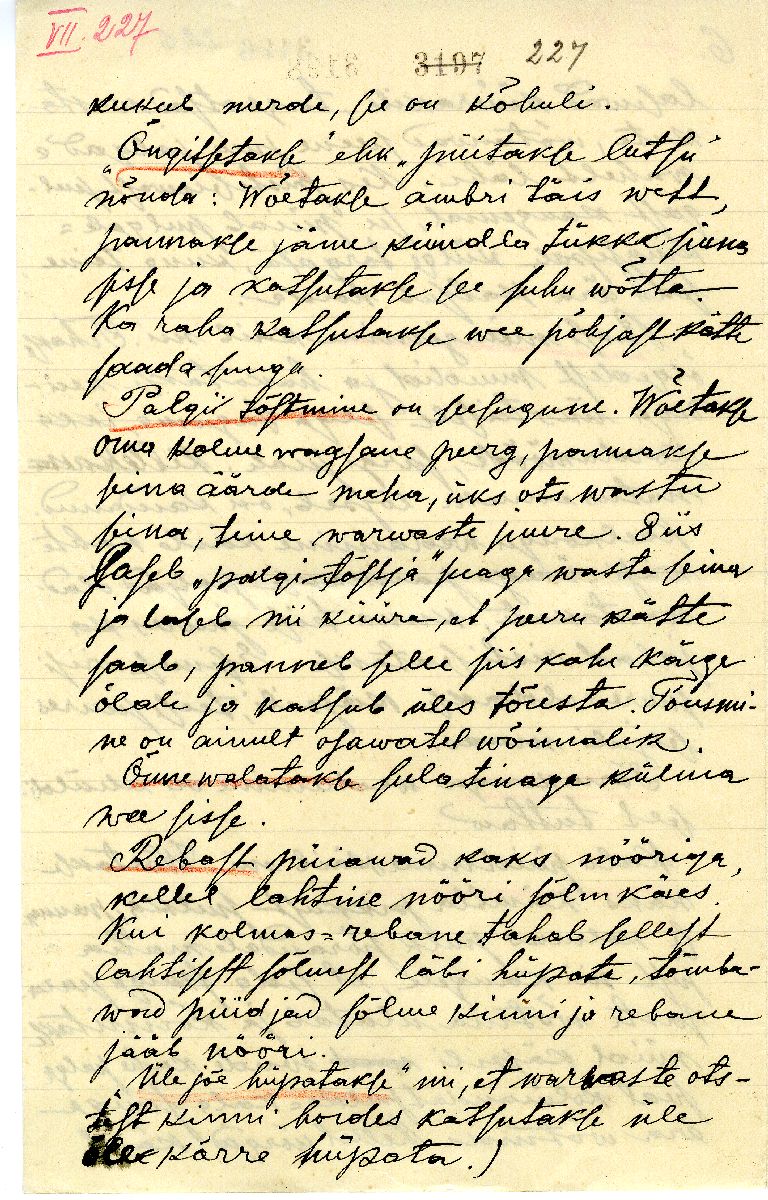 VII. 227
3197 227
kukub merde, se on kõhuli.
„Õngitsetakse" ehk „püitakse lutsu"
nõnda: Wõetakse ämbri täis wett,
pannakse jäme küündla tükk sinna
sisse ja katsutakse see suhu wõtta.
Ka raha katsutakse wee põhjast kätte
saada suuga.
Palgi tõstmine on seesugune. Wõetakse
oma kolme wagsane peerg, pannakse
seina äärde maha, üks ots wastu
seina, teine warwaste juure. Siis
laseb „palgi tõstja" peaga wasta seina
ja laseb nii küüra, et peeru kätte
saab, panneb selle siis kahe käega
õlale ja katsub üles tõusta. Tõusmi-
ne on ainult osawatel wõimalik.
Õnne walatakse sulatinaga külma
wee sisse.
Rebast püiawad kaks nööriga,
kellel lahtine nööri sõlm käes.
Kui kolmas=rebane tahab sellest
lahtisest sõlmest läbi hüpata, tõmba-
wad püidjad sõlme kinni ja rebane
jääb nööri.
„Üle jõe hüpatakse" nii, et warwaste ots-
test kinni hoides katsutakse üle
kõrre hüpata.)